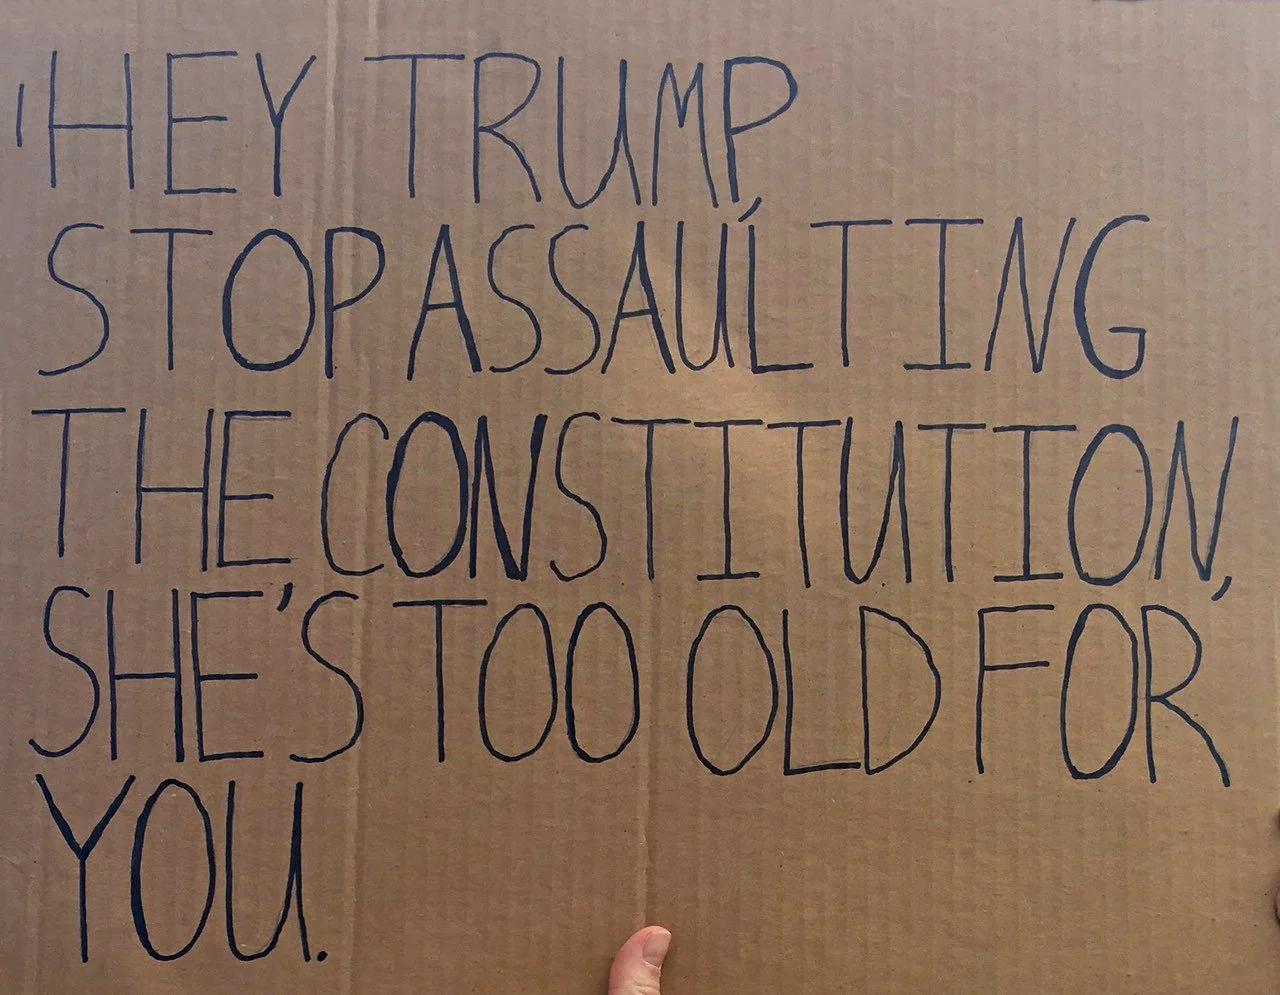 HEY TRUMP,
STOP ASSAULTING
THE CONSTITUTION,
SHE'S TOO OLD FOR
YOU.